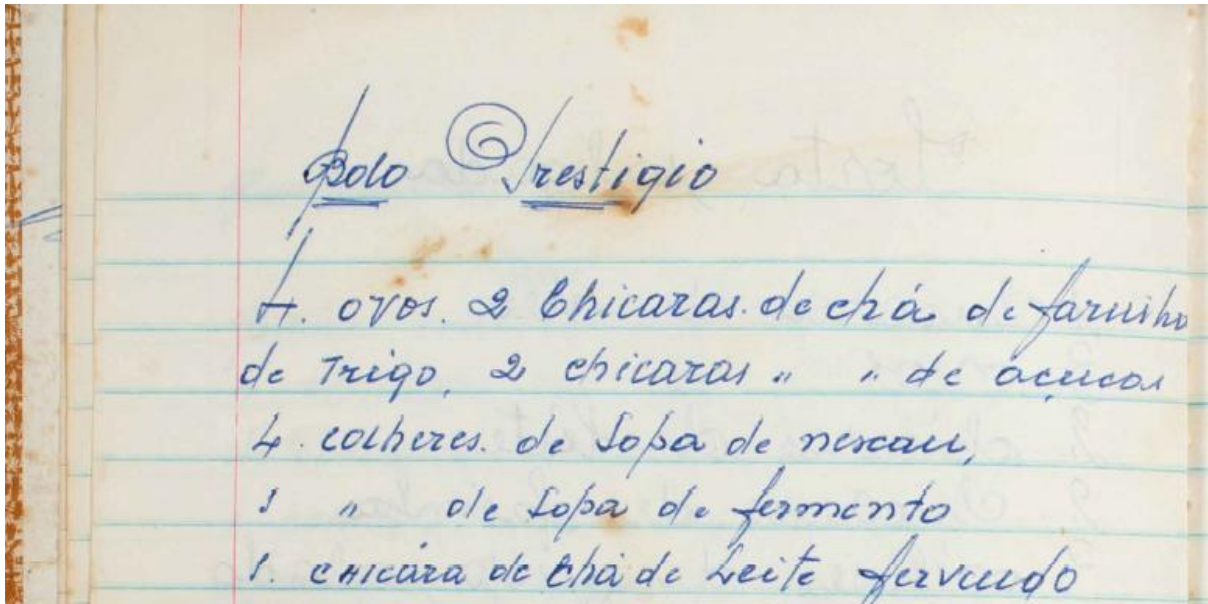 Bolo Prestigio
4. ovos. 2 Chicaras. de chá de farinha
de Trigo, 2 chicaras " " de açucar
4. colheres. de Sopa de nescau,
1 " de Sopa de fermento
1. chicára de Chá de Leite fervendo